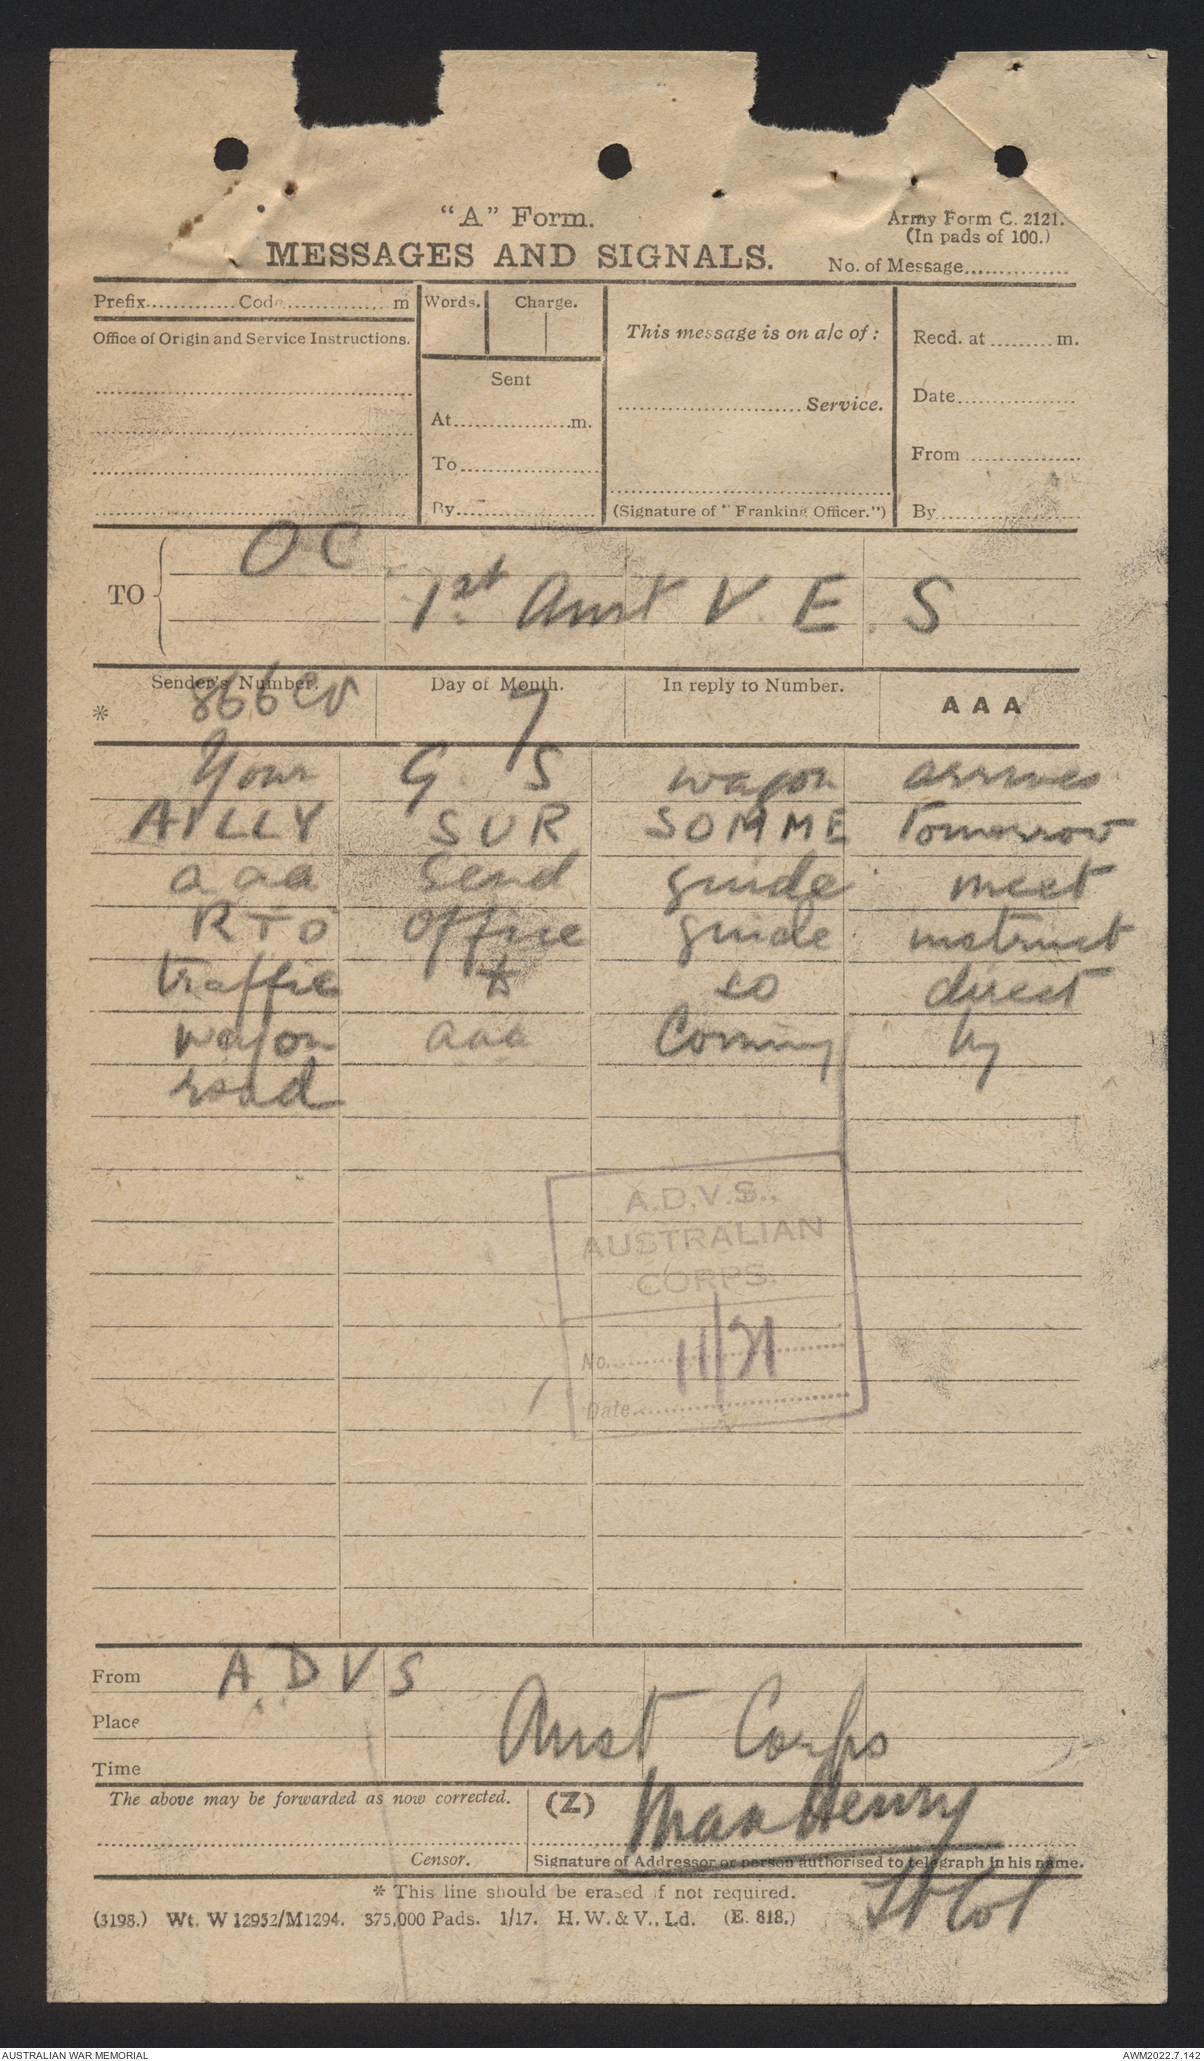 "A" Form.
Army Form C. 2121.
(In pads of 100.)
MESSAGES AND SIGNALS.
No. of Message...............
Prefix............ Code............... m
Words. Charge.
This message is on a/c of :
Recd. at ......... m.
Office of Origin and Service Instructions.
Sent
Date...................
........................... Service.
At....................m.
From ..................
To.......................
By.......................
(Signature of "Franking Officer.")
By.......................
TO
OC.
1st Aust V. E. S
Sender's Number. Day of Month. In reply to Number. AAA
* 866 7
Your G. S wagon arrives
AILLY SUR SOMME Tomorrow
aaa Send guide meet
RTO office guide instruct
traffic to direct
wagon aaa Coming by
road
A.D.V.S.,
AUSTRALIAN
CORPS.
No. 11/71
Date
From A.D.V.S
Place Aust Corps
Time
The above may be forwarded as now corrected. (Z) Max Henry
Censor. Signature of Addressor or person authorised to telegraph in his name.
* This line should be erased if not required.
Lt Col
(3198.) Wt. W 12952/M1294. 375,000 Pads. 1/17. H. W. & V., Ld. (E. 818.)
AUSTRALIAN WAR MEMORIAL
AWM2022.7.142